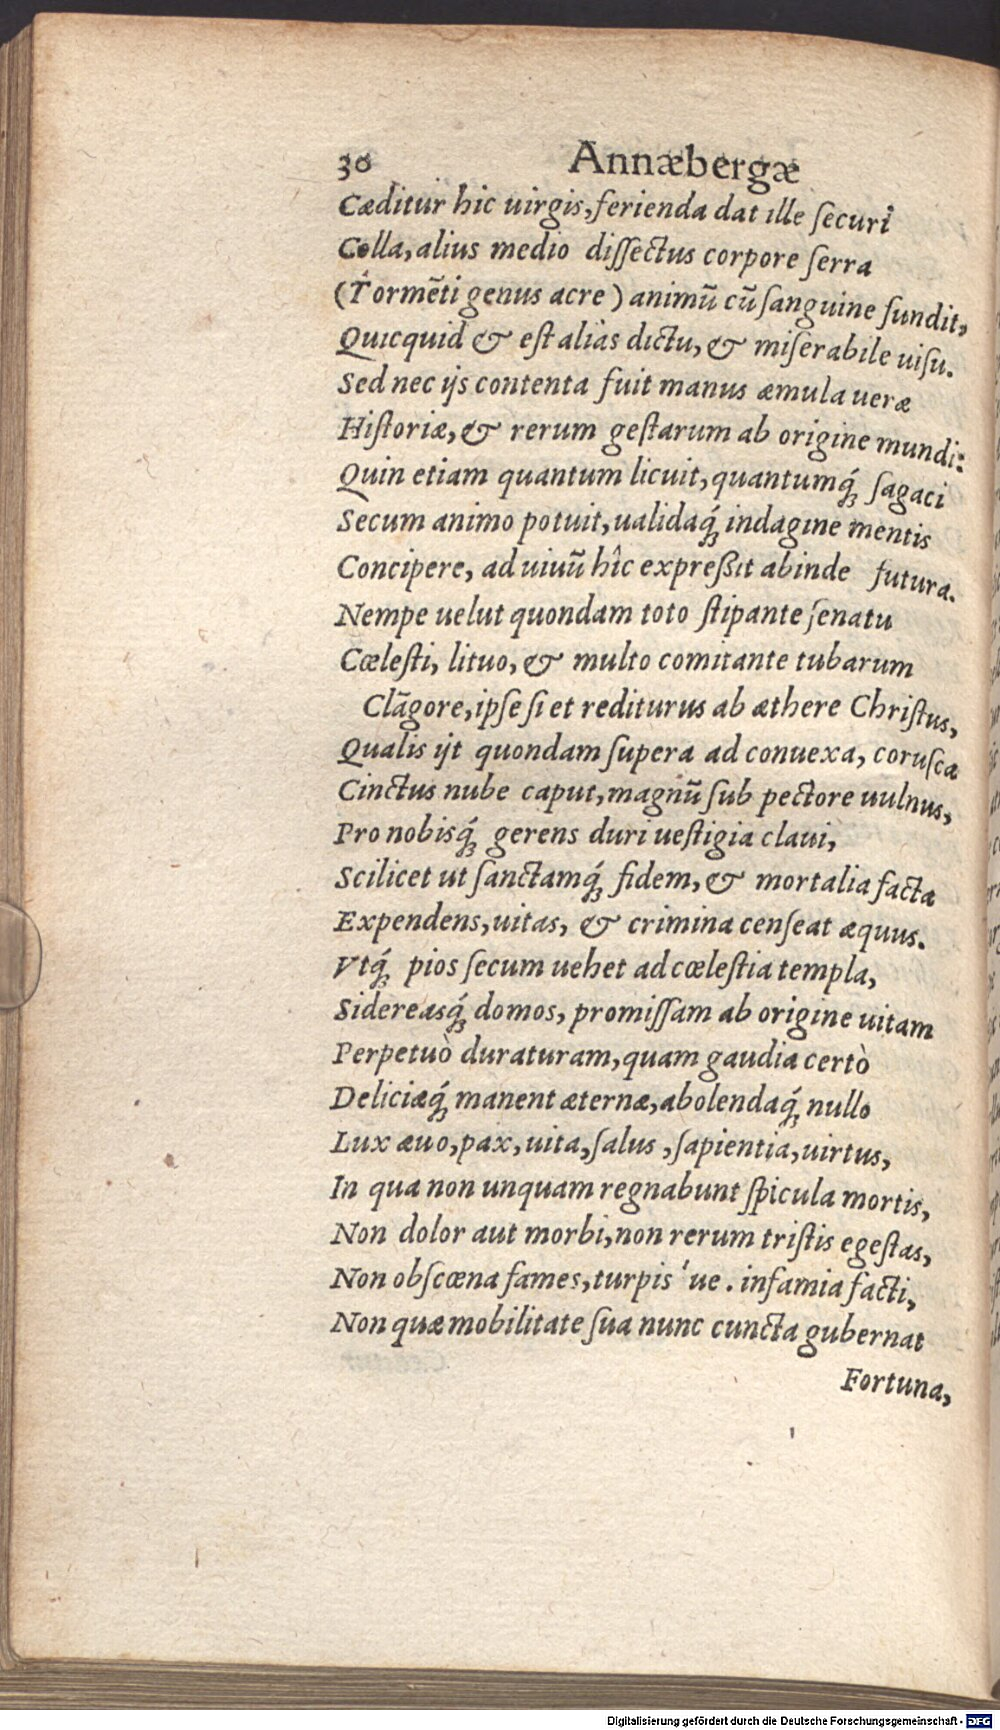 30 Annæbergæ
Cæditur hic uirgis, ferienda dat ille ſecuri
Colla, alius medio diſſectus corpore ſerra
(Tormẽti genus acre) animũ cũ ſanguine fundit,
Quicquid & eſt aliàs dictu, & miſerabile uiſu.
Sed nec ijs contenta fuit manus æmula ueræ
Hiſtoriæ, & rerum geſtarum ab origine mundi:
Quin etiam quantum licuit, quantumq́; ſagaci
Secum animo potuit, ualidaq́; indagine mentis
Concipere, ad uiuũ hîc expreßit abinde futura.
Nempe uelut quondam toto ſtipante ſenatu
Cœleſti, lituo, & multo comitante tubarum
Clãgore, ipſe ſiet rediturus ab æthere Chriſtus,
Qualis ijt quondam ſupera ad conuexa, coruſca
Cinctus nube caput, magnũ ſub pectore uulnus,
Pro nobisq́; gerens duri ueſtigia claui,
Scilicet ut ſanctamq́; fidem, & mortalia facta
Expendens, uitas, & crimina cenſeat æquus.
Vtq́; pios ſecum uehet ad cœleſtia templa,
Sidereasq́; domos, promiſſam ab origine uitam
Perpetuò duraturam, quam gaudia certò
Deliciæq́; manent æternæ, abolendaq́; nullo
Lux æuo, pax, uita, ſalus, ſapientia, uirtus,
In qua non unquam regnabunt ſpicula mortis,
Non dolor aut morbi, non rerum triſtis egeſtas,
Non obſcœna fames, turpis'ue . infamia facti,
Non quæ mobilitate ſua nunc cuncta gubernat
Fortuna,
Digitalisierung gefördert durch die Deutsche Forschungsgemeinschaft - DFG